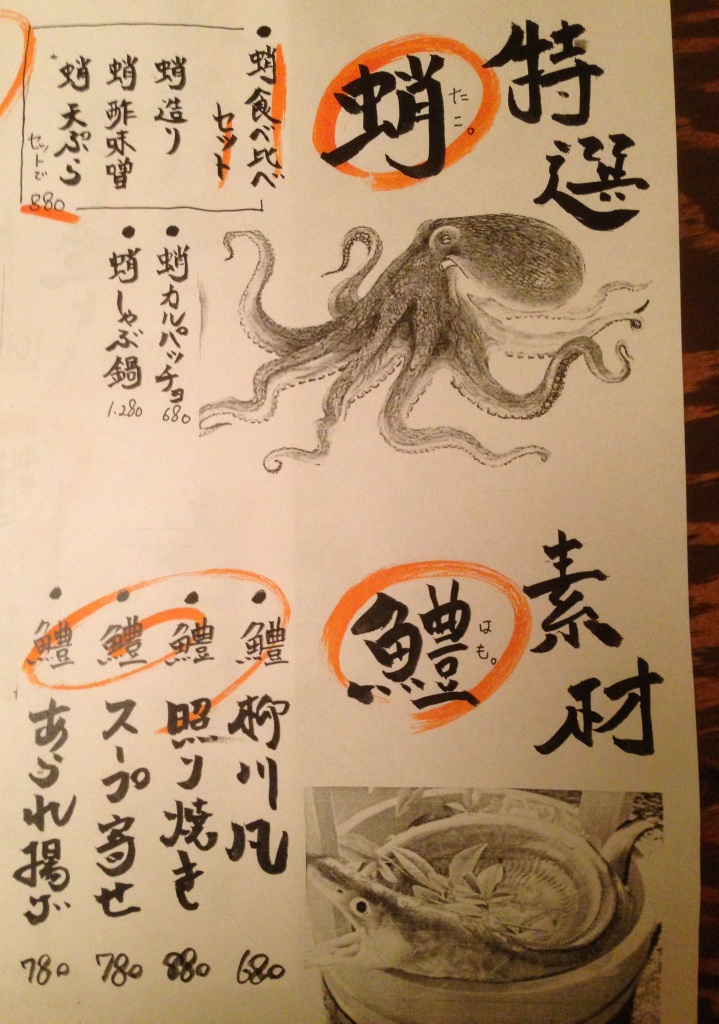 特選
蛸
たこ。
・蛸食べ比べ
セット
蛸造り
蛸酢味噌
蛸天ぷら
セットで
880
・蛸カルパッチョ
680
・蛸しゃぶ鍋
1.280
素材
鱧
はも。
・鱧柳川風
680
・鱧照り焼き
880
・鱧スープ寄せ
780
・鱧あられ揚げ
780